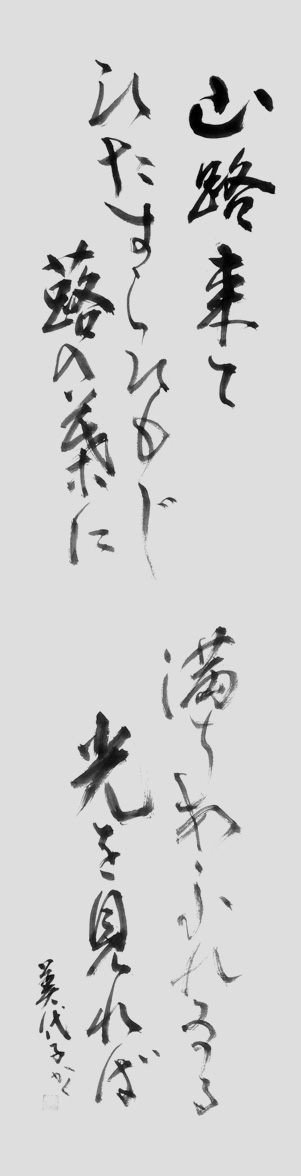 山路来て
ひたすらひもじ
蕗の葉に
満ちあふれゐる
光を見れば
美代子かく